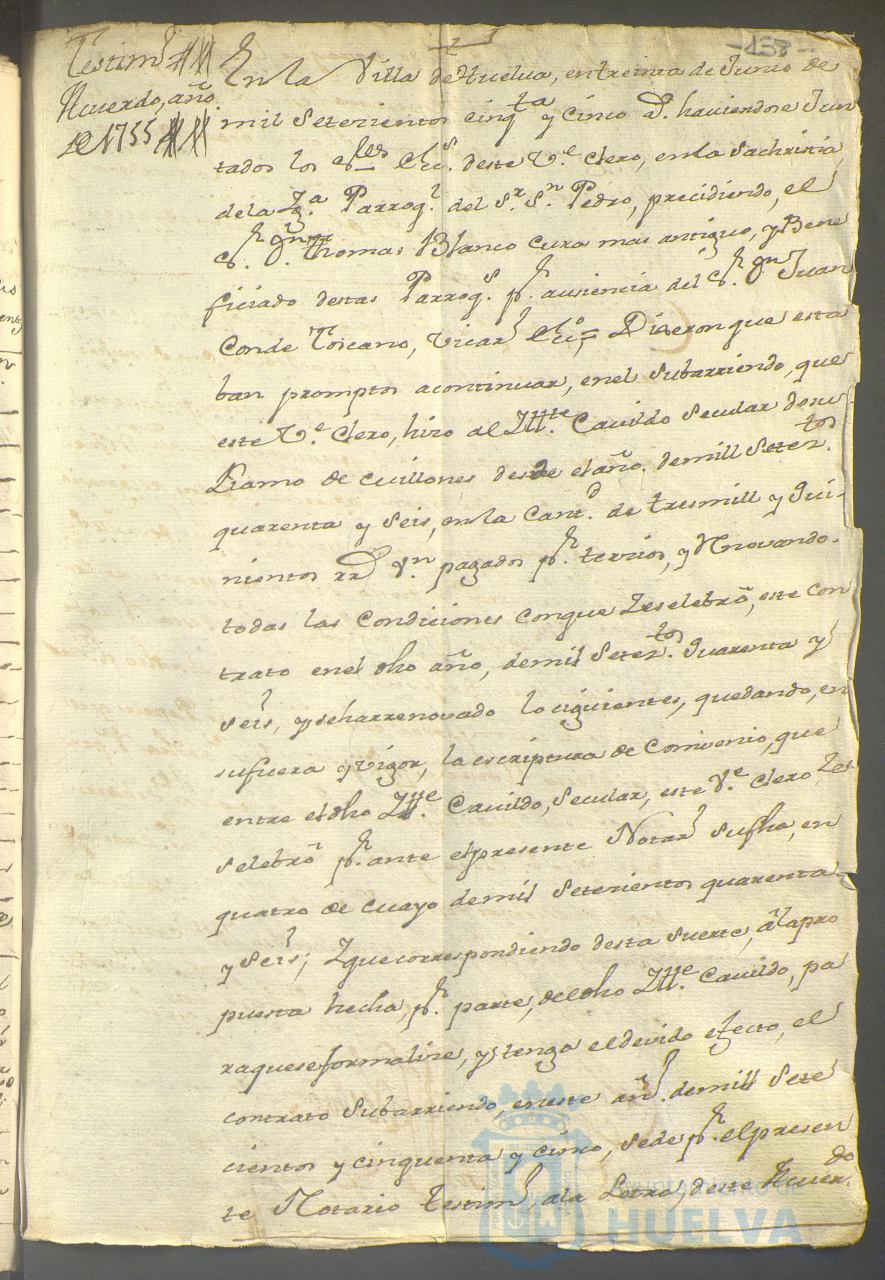 -138-
Testim.o
Acuerdo, año
de 1755
En la Villa de Huelva, en treinta de Junio de
mil Setezientos cinq.ta y Cinco a.s haviendose Jun
tados los S.res Ecc.s deste V.e Clero, en la Sachristia
de la Ig.a Parroq.l del S.r S.n Pedro, precidiendo, el
S.r D.n Thomas Blanco Cura mas antiguo, y Bene
ficiado destas Parroq.s p.r ausiencia del S.r D.n Juan
Conde Toscano, Vicar.o Ecc.o = Dixeron que esta
ban promptos acontinuar, enel Subarriendo, que
este V.e Clero, hizo al Ill.e Cavildo Secular desu
Ramo de cuillones desde el año. demill Setez.tos
quarenta y Seis, en la Cant.d de tresmill y Qui-
nientos rr.s v.n pagados p.r tercios, y Rnovando.
todas las Condiciones conque Zeselebró, este con
trato enel dho año, demil Setez.tos Quarenta y
Seis, y seharrenovado lo ciguientes, quedando, en
sufuerza y vigor, la escriptura de Convenio, que
entre eldho Ill.e Cavildo, Secular, este V.e Clero Ze
Selebró p.r ante elpresente Notar.o Sufha, en
quatro de Mayo demil Setezientos quarenta
y Seis; Zquecorrespondiendo desta suerte, a la pro
puesta hecha, p.r parte, deldho Ill.e Cavildo, pa
raqueseformalize, y tenga eldevido efecto, el
contrato Subarriendo, eneste añ.o demill Sete
cientos y cinquenta y cinco, Sede p.r elpresen
te Notario testim.o, ala Letra, deste Acuer.do
AYUNTAMIENTO DE
HUELVA